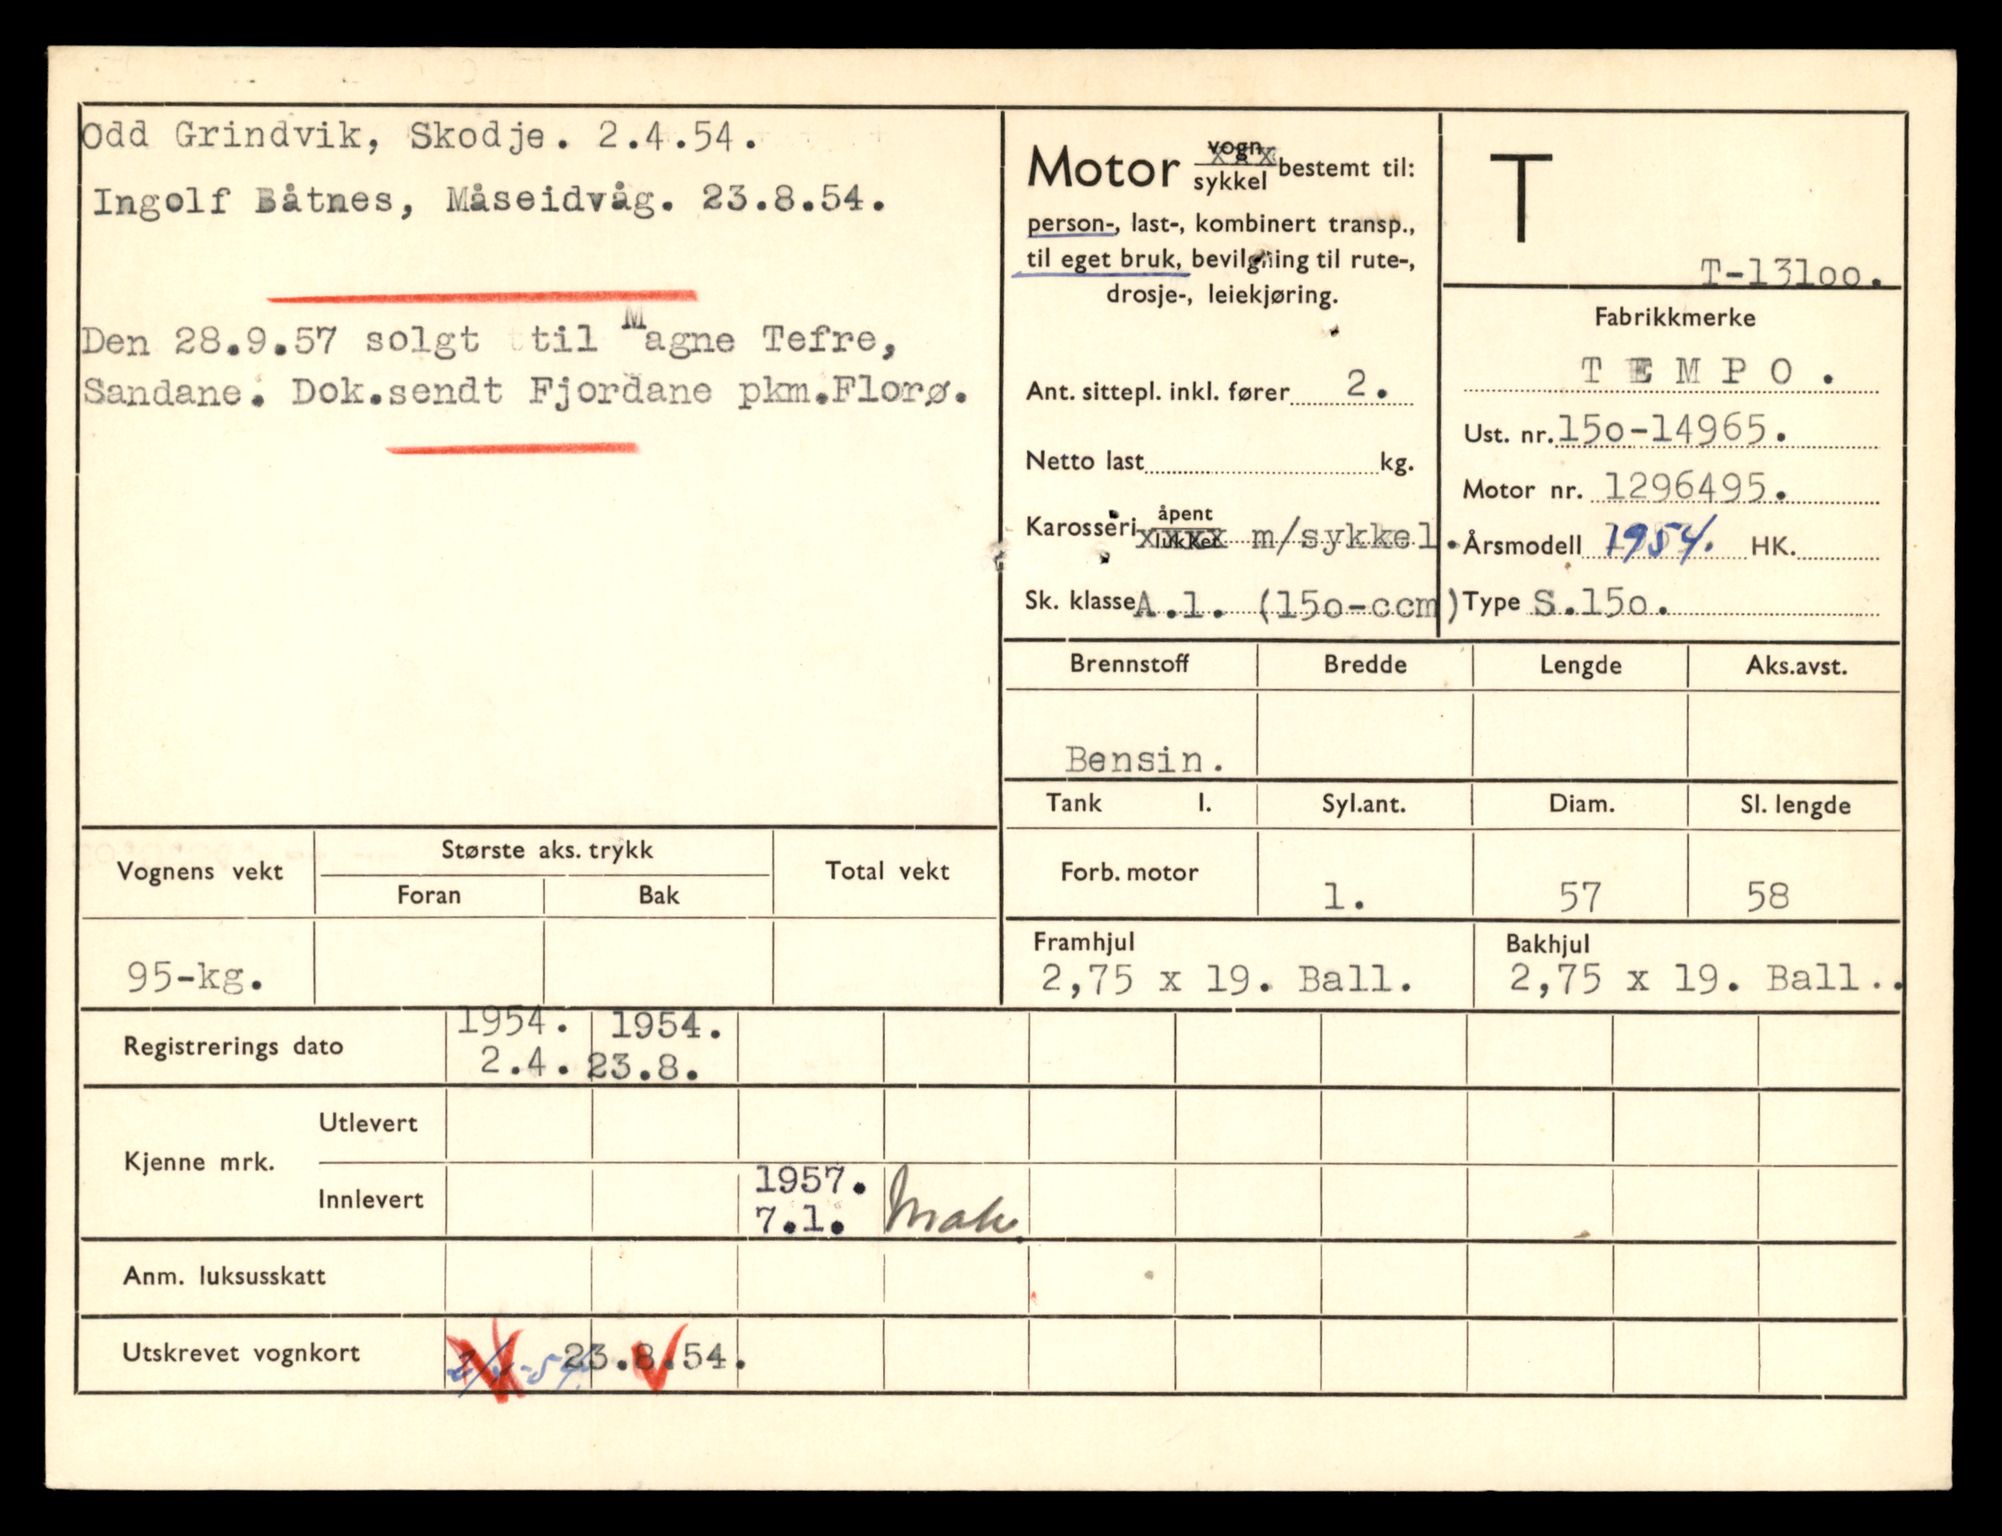 Odd Grindvik, Skodje. 2.4.54.
Ingolf Båtnes, Måseidvåg. 23.8.54.
Den 28.9.57 solgt til Magne Tefre,
Sandane. Dok.sendt Fjordane pkm.Florø.
Motor vogn sykkel bestemt til:
person-, last-, kombinert transp.,
til eget bruk, bevilgning til rute-,
drosje-, leiekjøring.
Ant. sittepl. inkl. fører 2.
Netto last kg.
Karosseri åpent lukket m/sykkel.
Sk. klasse A.1. (15o-ccm)
T
T-131oo.
Fabrikkmerke
TEMPO.
Ust. nr. 15o-14965.
Motor nr. 1296495.
Årsmodell 1954. HK.
Type S.15o.
Brennstoff Bredde Lengde Aks.avst.
Bensin.
Tank l. Syl.ant. Diam. Sl. lengde
Forb. motor 1. 57 58
Framhjul Bakhjul
2,75 x 19. Ball. 2,75 x 19. Ball..
Vognens vekt Største aks. trykk Total vekt
Foran Bak
95-kg.
Registrerings dato 1954. 1954.
2.4. 23.8.
Kjenne mrk. Utlevert
Innlevert 1957.
7.1.
Anm. luksusskatt
Utskrevet vognkort 23.8.54.